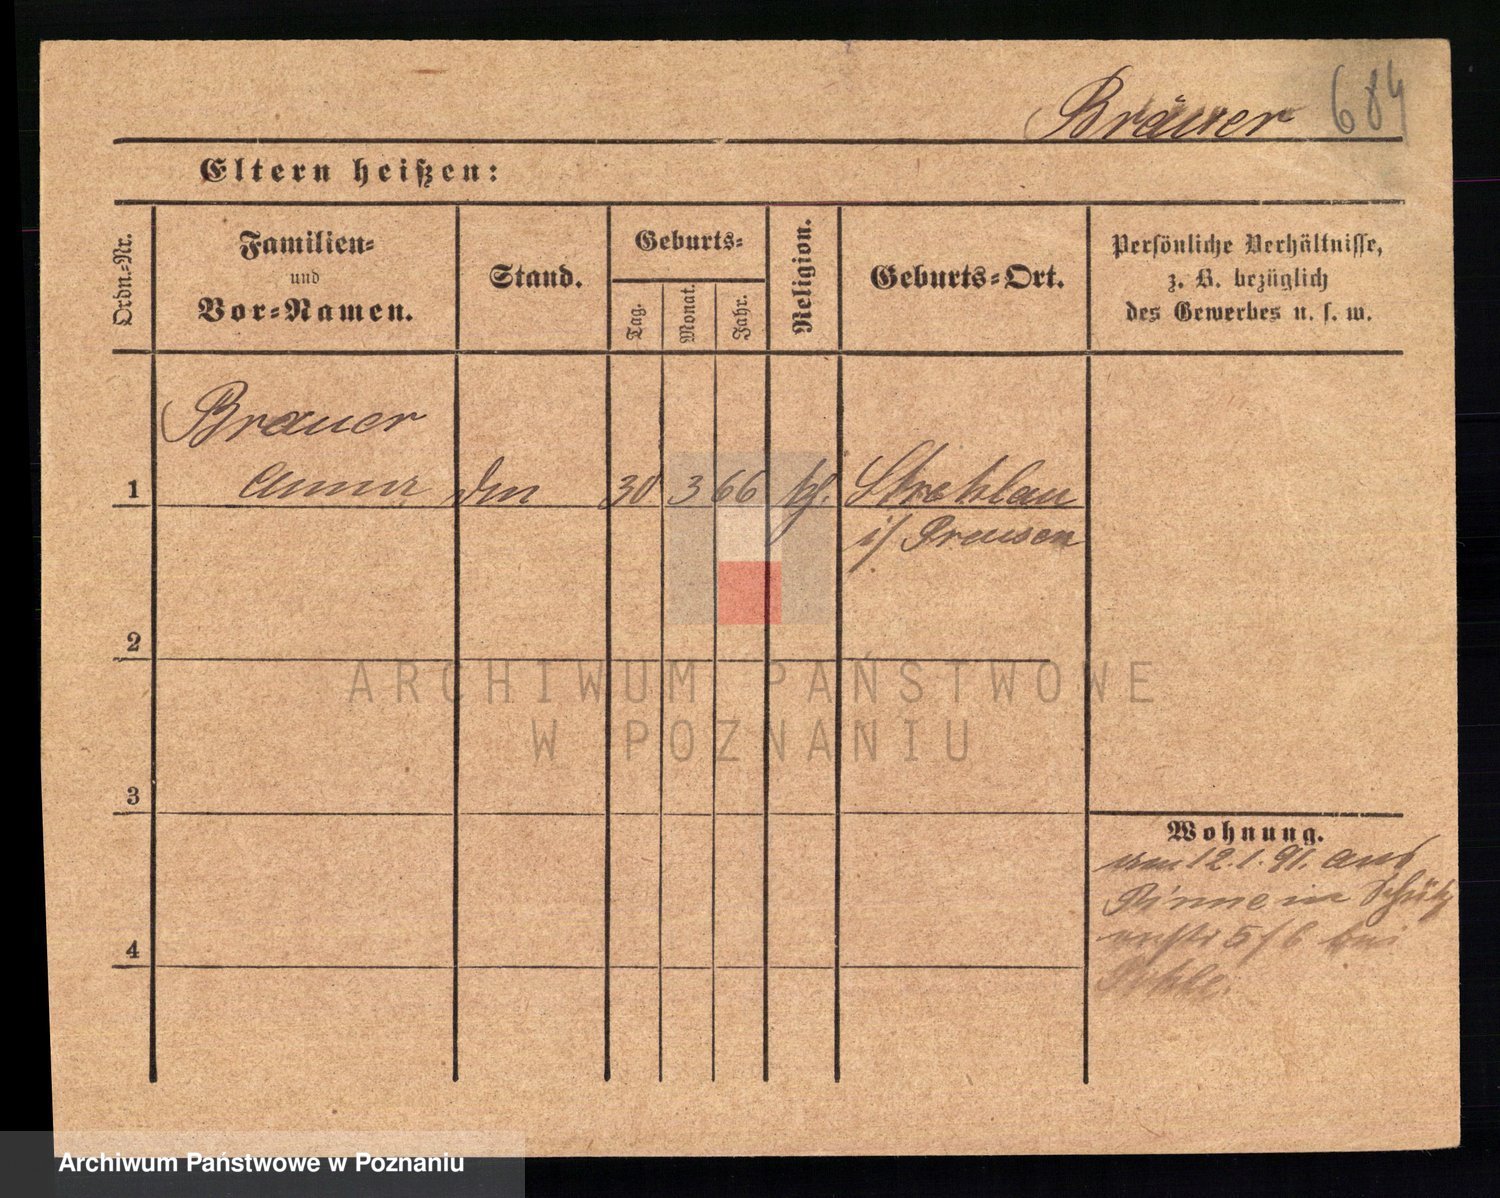 Bräuer 684
Eltern heißen:
Ordn.-Nr.
Familien-
und
Vor-Namen.
Stand.
Geburts-
Tag.
Monat.
Jahr.
Religion.
Geburts-Ort.
Persönliche Verhältnisse,
z. B. bezüglich
des Gewerbes u. s. w.
Brauer
1 Anna 30 3 66 Strehlau
i/ Preussen
2
3
4
Wohnung.
12.1.91. aus
Pinne in Schütz
5/6 bei
ARCHIWUM PAŃSTWOWE
W POZNANIU
Archiwum Państwowe w Poznaniu